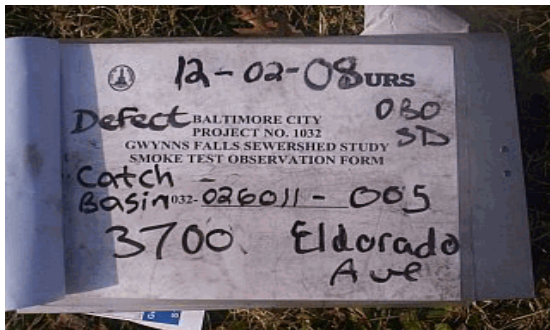 12-02-08 URS
Defect BALTIMORE CITY OBO
PROJECT NO. 1032 SD
GWYNNS FALLS SEWERSHED STUDY
SMOKE TEST OBSERVATION FORM
Catch -
Basin 032-026011-005
3700 Eldorado
Ave